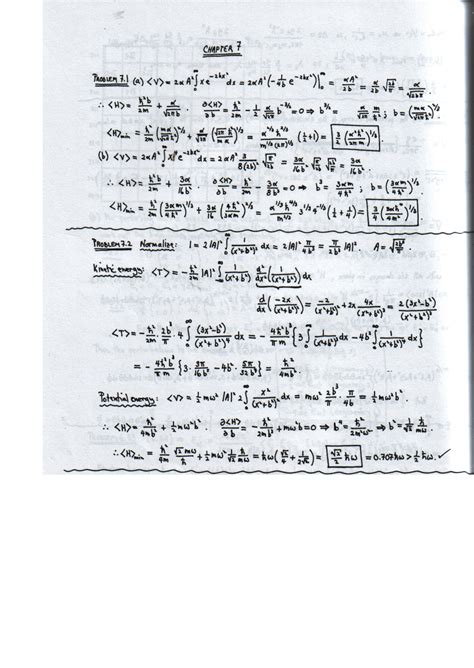 CHAPTER 7
PROBLEM 7.1 (a) <V> = 2αA² ∫₀^∞ x e^{-2bx²} dx = 2αA² (-1/4b e^{-2bx²})|₀^∞ = αA²/2b = α/2b √(2b/π) = α/√(2bπ)
∴ <H> = ħ²b/2m + α/√(2πb) . ∂<H>/∂b = ħ²/2m - 1/2 α/√(2π) b^{-3/2} = 0 ⇒ b^{3/2} = α/√(2π) m/ħ² ; b = (mα/√(2π)ħ²)^{2/3}
<H>min = ħ²/2m (mα/√(2π)ħ²)^{2/3} + α/√(2π) (√(2π)ħ²/mα)^{1/3} = α^{2/3}ħ^{2/3}/m^{1/3}(2π)^{1/3} (1/2+1) = 3/2 (α²ħ²/2πm)^{1/3}
(b) <V> = 2αA² ∫₀^∞ x⁴ e^{-2bx²} dx = 2αA² 3/8(2b)² √(π/2b) = 3α/16b² √(π/2b) √(2b/π) = 3α/16b².
∴ <H> = ħ²b/2m + 3α/16b² ∂<H>/∂b = ħ²/2m - 3α/8b³ = 0 ⇒ b³ = 3αm/4ħ² ; b = (3αm/4ħ²)^{1/3}
<H>min = ħ²/2m (3αm/4ħ²)^{1/3} + 3α/16 (4ħ²/3αm)^{2/3} = α^{1/3}ħ^{4/3}/m^{2/3} 3^{1/3} 4^{-1/3} (1/2+1/4) = 3/4 (3αħ⁴/4m²)^{1/3}.
PROBLEM 7.2 Normalize: 1 = 2|A|² ∫₀^∞ 1/(x²+b²)² dx = 2|A|² π/4b³ = π/2b³ |A|². A = √(2b³/π).
Kinetic energy: <T> = -ħ²/2m |A|² ∫_{-∞}^∞ 1/(x²+b²) d²/dx² (1/(x²+b²)) dx
d/dx (-2x/(x²+b²)²) = -2/(x²+b²)² + 2x 4x/(x²+b²)³ = 2(3x²-b²)/(x²+b²)³
<T> = -ħ²/2m · 2b³/π · 4 ∫₀^∞ (3x²-b²)/(x²+b²)⁴ dx = -4ħ²b³/πm {3 ∫₀^∞ 1/(x²+b²)³ dx - 4b² ∫₀^∞ 1/(x²+b²)⁴ dx}
= -4ħ²b³/πm {3 · 3π/16b⁵ - 4b² · 5π/32b⁷} = ħ²/4mb²
Potential energy: <V> = 1/2 mω² |A|² 2 ∫₀^∞ x²/(x²+b²)² dx = mω² 2b³/π · π/4b = 1/2 mω²b².
∴ <H> = ħ²/4mb² + 1/2 mω²b². ∂<H>/∂b = -ħ²/2mb³ + mω²b = 0 ⇒ b⁴ = ħ²/2m²ω² ⇒ b² = 1/√2 ħ/mω.
∴ <H>min = ħ²/4m √2mω/ħ + 1/2 mω² 1/√2 ħ/mω = ħω (√2/4 + 1/2√2) = √2/2 ħω = 0.707ħω > 1/2 ħω. ✓